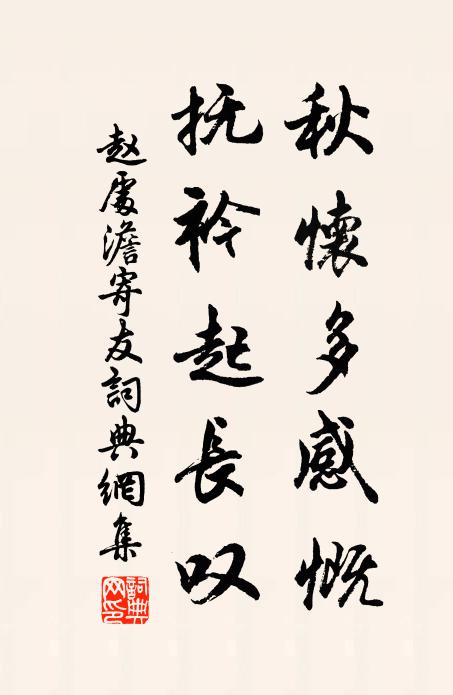 秋懷多感慨
抚衿起長叹
赵處澹寄友詞典網集
詞典网印